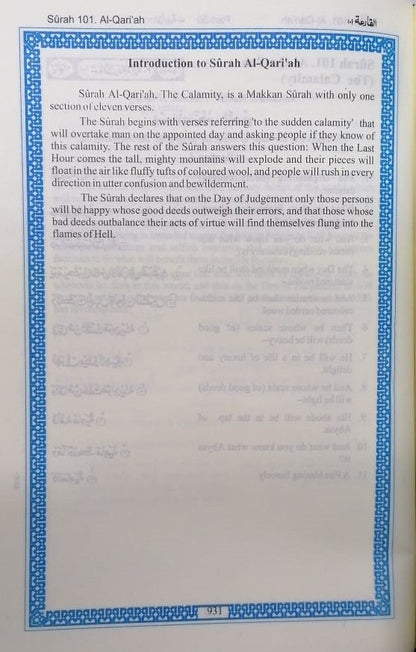 Sûrah 101. Al-Qari'ah القارعة ١٠١
Introduction to Sûrah Al-Qari'ah
Sûrah Al-Qari'ah, The Calamity, is a Makkan Sûrah with only one
section of eleven verses.
The Sûrah begins with verses referring 'to the sudden calamity' that
will overtake man on the appointed day and asking people if they know of
this calamity. The rest of the Sûrah answers this question: When the Last
Hour comes the tall, mighty mountains will explode and their pieces will
float in the air like fluffy tufts of coloured wool, and people will rush in every
direction in utter confusion and bewilderment.
The Sûrah declares that on the Day of Judgement only those persons
will be happy whose good deeds outweigh their errors, and that those whose
bad deeds outbalance their acts of virtue will find themselves flung into the
flames of Hell.
931